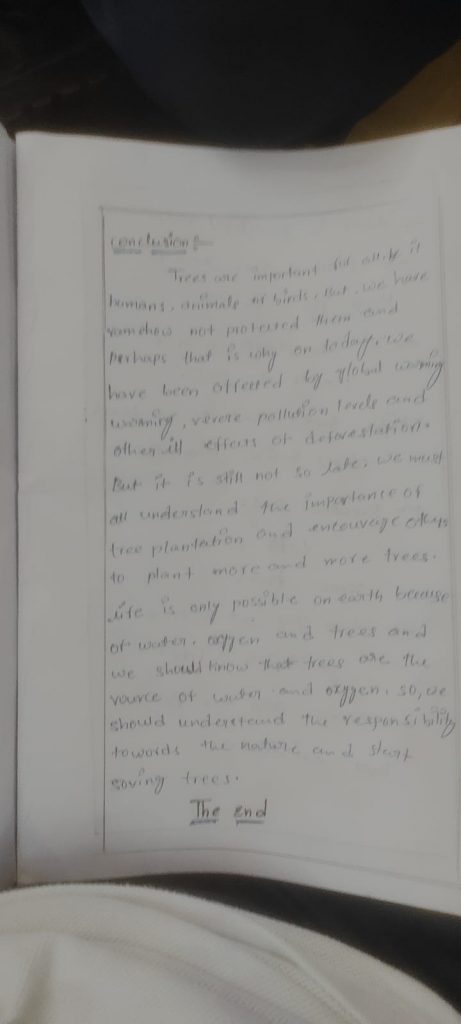 conclusion :-
Trees are important for all, if it
humans, animals or birds. But, we have
somehow not protected them and
perhaps that is why on today, we
have been affected by global worming
worming, severe pollution levels and
other ill effects of deforestation.
But it is still not so late; we must
all understand the importance of
tree plantation and encourage others
to plant more and more trees.
Life is only possible on earth because
of water, oxygen and trees and
we should know that trees are the
source of water and oxygen. so, we
should understand the responsibility
towards the nature and start
soving trees.
The end